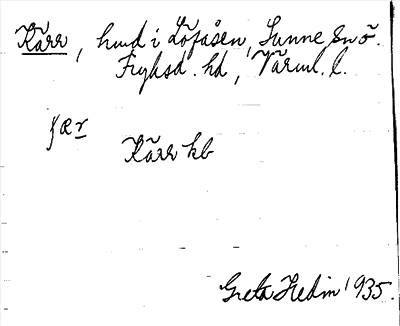 Kärr, hmd i Löfåsen, Sunne sn ö.
Fryksd. hd, Värml. l.
Kärr kb
Greta Hedin 1935.